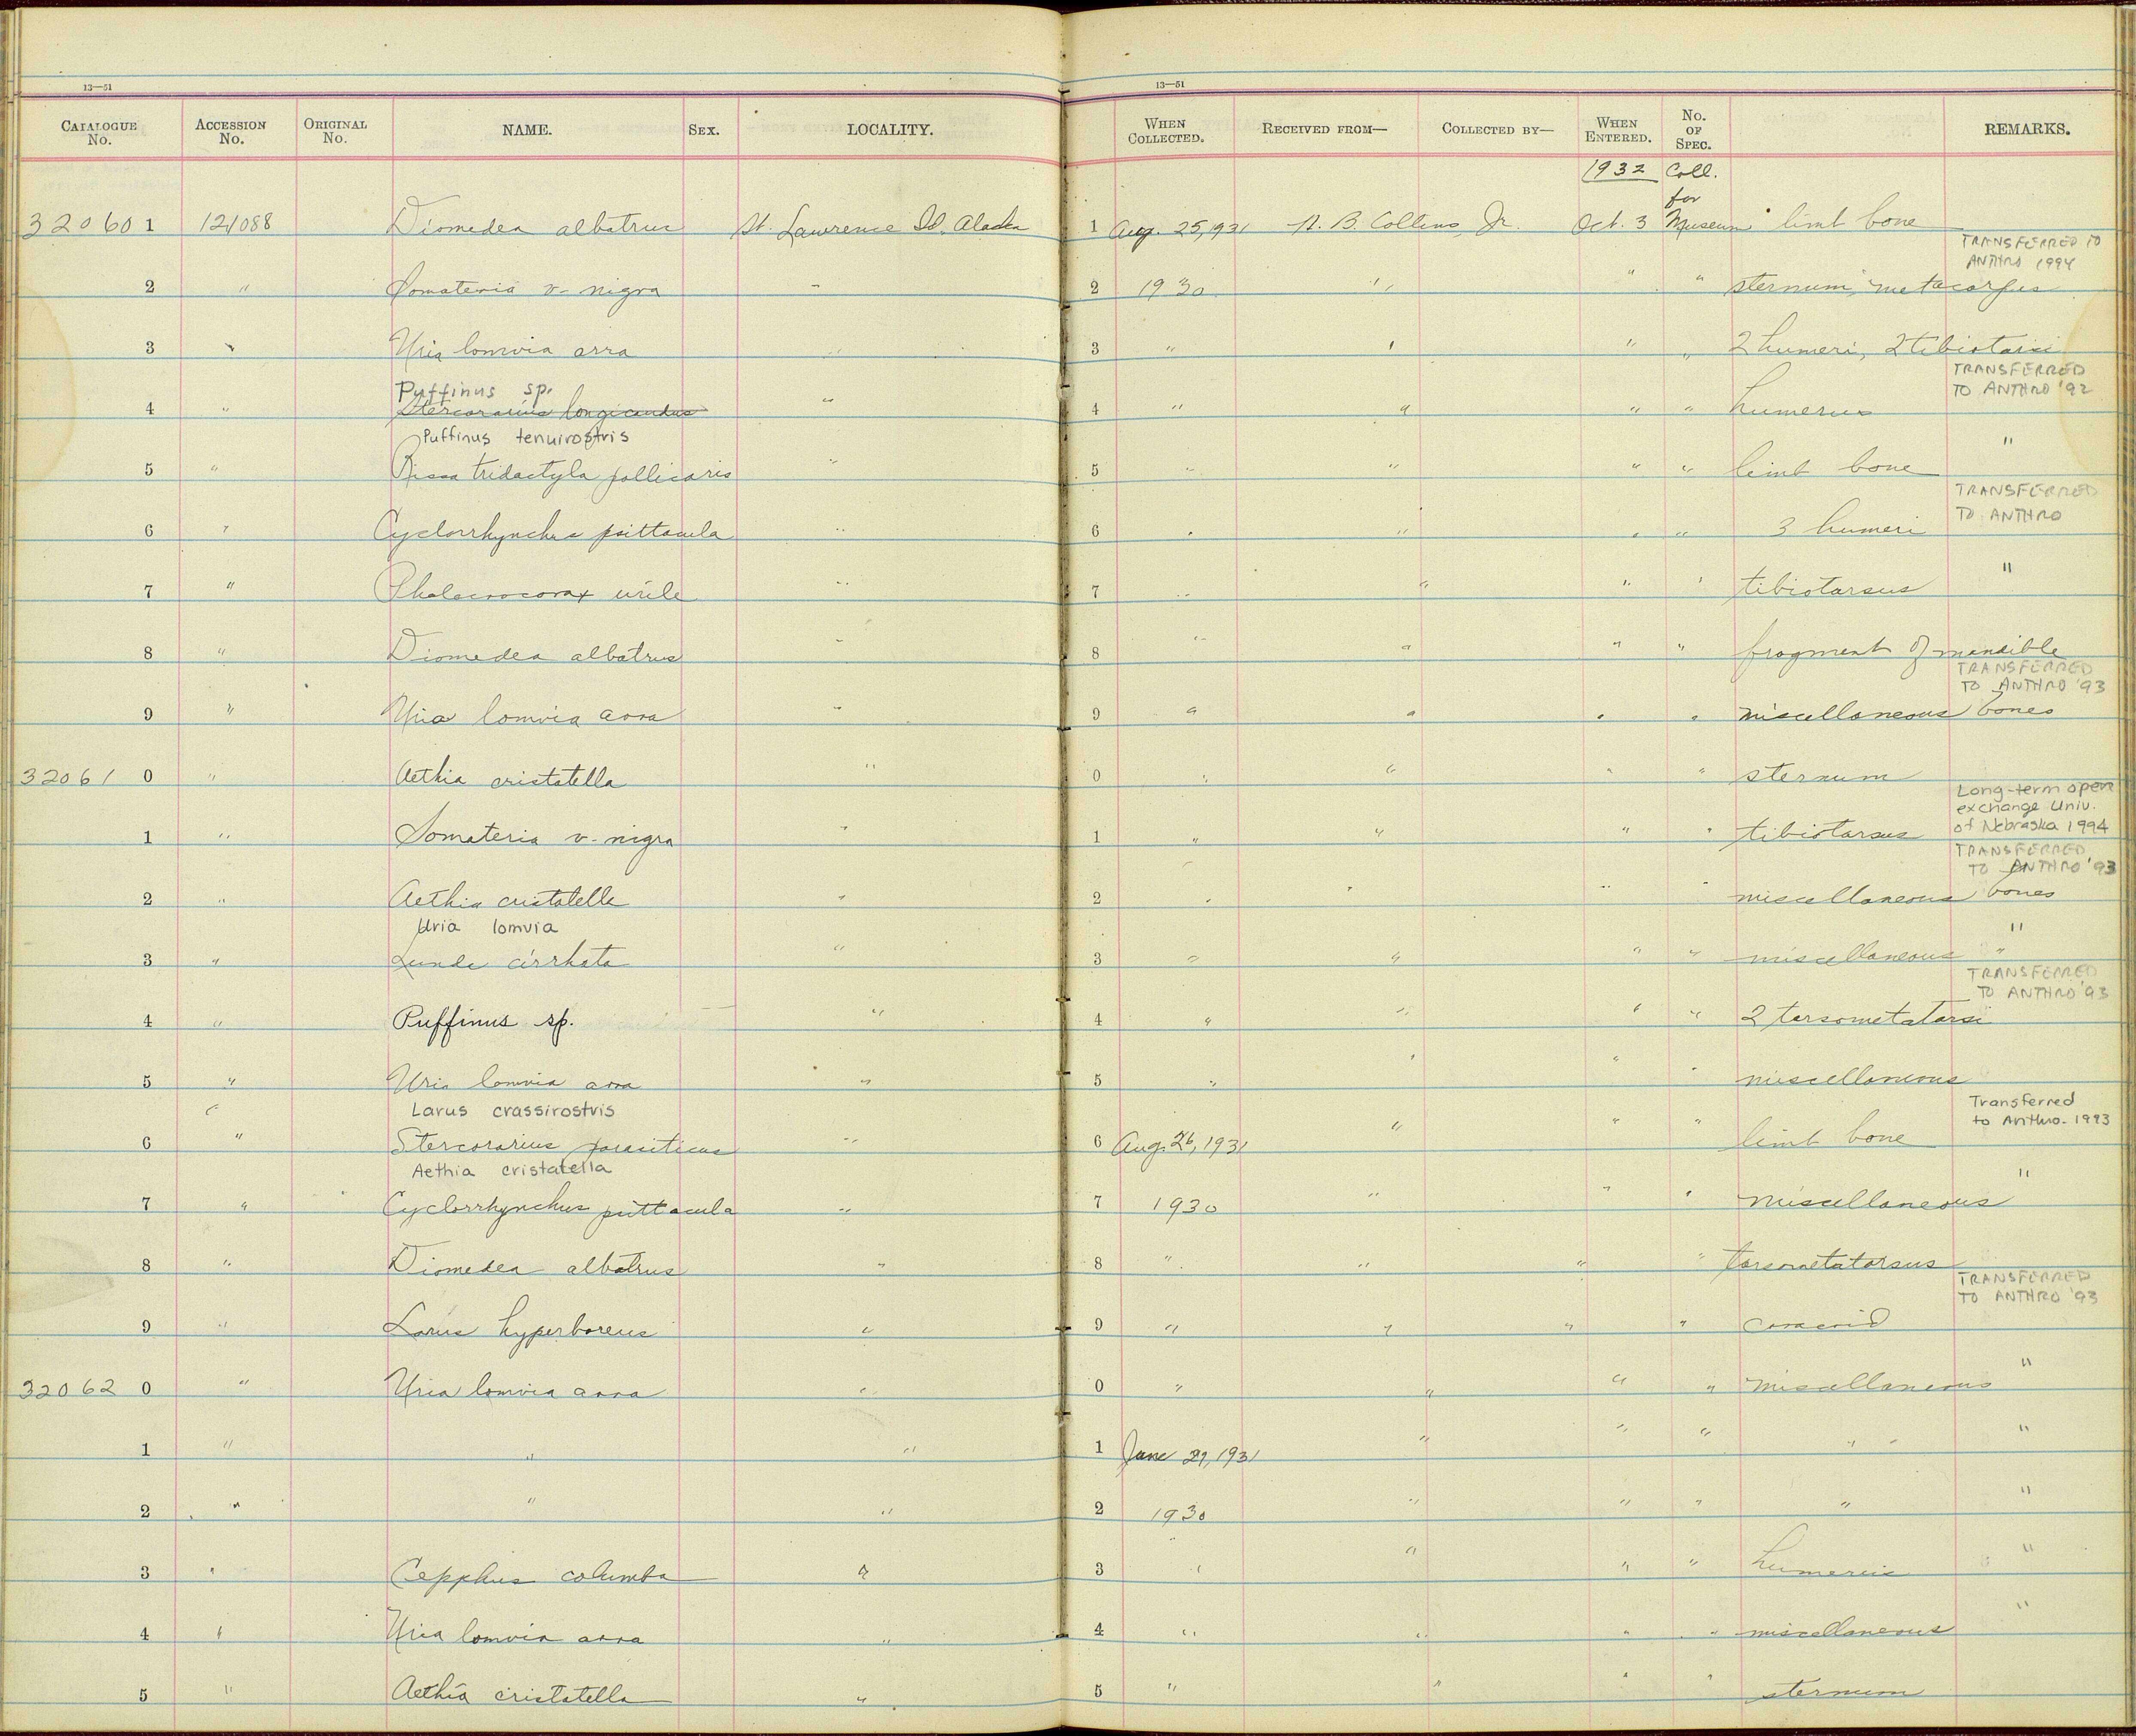 13—51
13—51
CATALOGUE No. ACCESSION No. ORIGINAL No. NAME. SEX. LOCALITY. WHEN COLLECTED. RECEIVED FROM— COLLECTED BY— WHEN ENTERED. No. OF SPEC. REMARKS.
1932 Coll. for
32060 1 121088 Diomedea albatrus St. Lawrence Id. Alaska 1 Aug. 25, 1931 H. B. Collins, Jr. Oct. 3 Museum limb bone
TRANSFERRED TO
ANTHRO 1994
2 " Somateria v-nigra " 2 1930 " " " sternum, metacarpus
3 " Uria lomvia arra " 3 " " " " 2 humeri, 2 tibiotarsi
Puffinus sp.
TRANSFERRED
TO ANTHRO '92
4 " Stercorarius longicaudus " 4 " " " " humerus
Puffinus tenuirostris
"
5 " Rissa tridactyla pollicaris " 5 " " " " limb bone
TRANSFERRED
TO ANTHRO
6 " Cyclorrhynchus psittacula " 6 " " " " 3 humeri
7 " Phalacrocorax urile " 7 " " " " tibiotarsus "
8 " Diomedea albatrus " 8 " " " " fragment of mandible
TRANSFERRED
TO ANTHRO '93
9 " Uria lomvia arra " 9 " " " " miscellaneous bones
32061 0 " Aethia cristatella " 0 " " " " sternum
Long-term open
exchange Univ.
of Nebraska 1994
1 " Somateria v-nigra " 1 " " " " tibiotarsus
TRANSFERRED
TO ANTHRO '93
2 " Aethia cristatella " 2 " " " " miscellaneous bones
Uria lomvia
"
3 " Lunda cirrhata " 3 " " " " miscellaneous "
TRANSFERRED
TO ANTHRO '93
4 " Puffinus sp. " 4 " " " " 2 tarsometatarsi
5 " Uria lomvia arra " 5 " " " " miscellaneous
Larus crassirostris
Transferred
to Anthro. 1993
6 " Stercorarius parasiticus " 6 Aug. 26, 1931 " " " limb bone
Aethia cristatella
"
7 " Cyclorrhynchus psittacula " 7 1930 " " " miscellaneous
8 " Diomedea albatrus " 8 " " " " tarsometatarsus
TRANSFERRED
TO ANTHRO '93
9 " Larus hyperboreus " 9 " " " " coracoid
32062 0 " Uria lomvia arra " 0 " " " " miscellaneous "
1 " " " 1 June 29, 1931 " " " " " "
2 " " " 2 1930 " " " " "
3 " Cepphus columba " 3 " " " " humerus "
4 " Uria lomvia arra " 4 " " " " miscellaneous "
5 " Aethia cristatella " 5 " " " " sternum